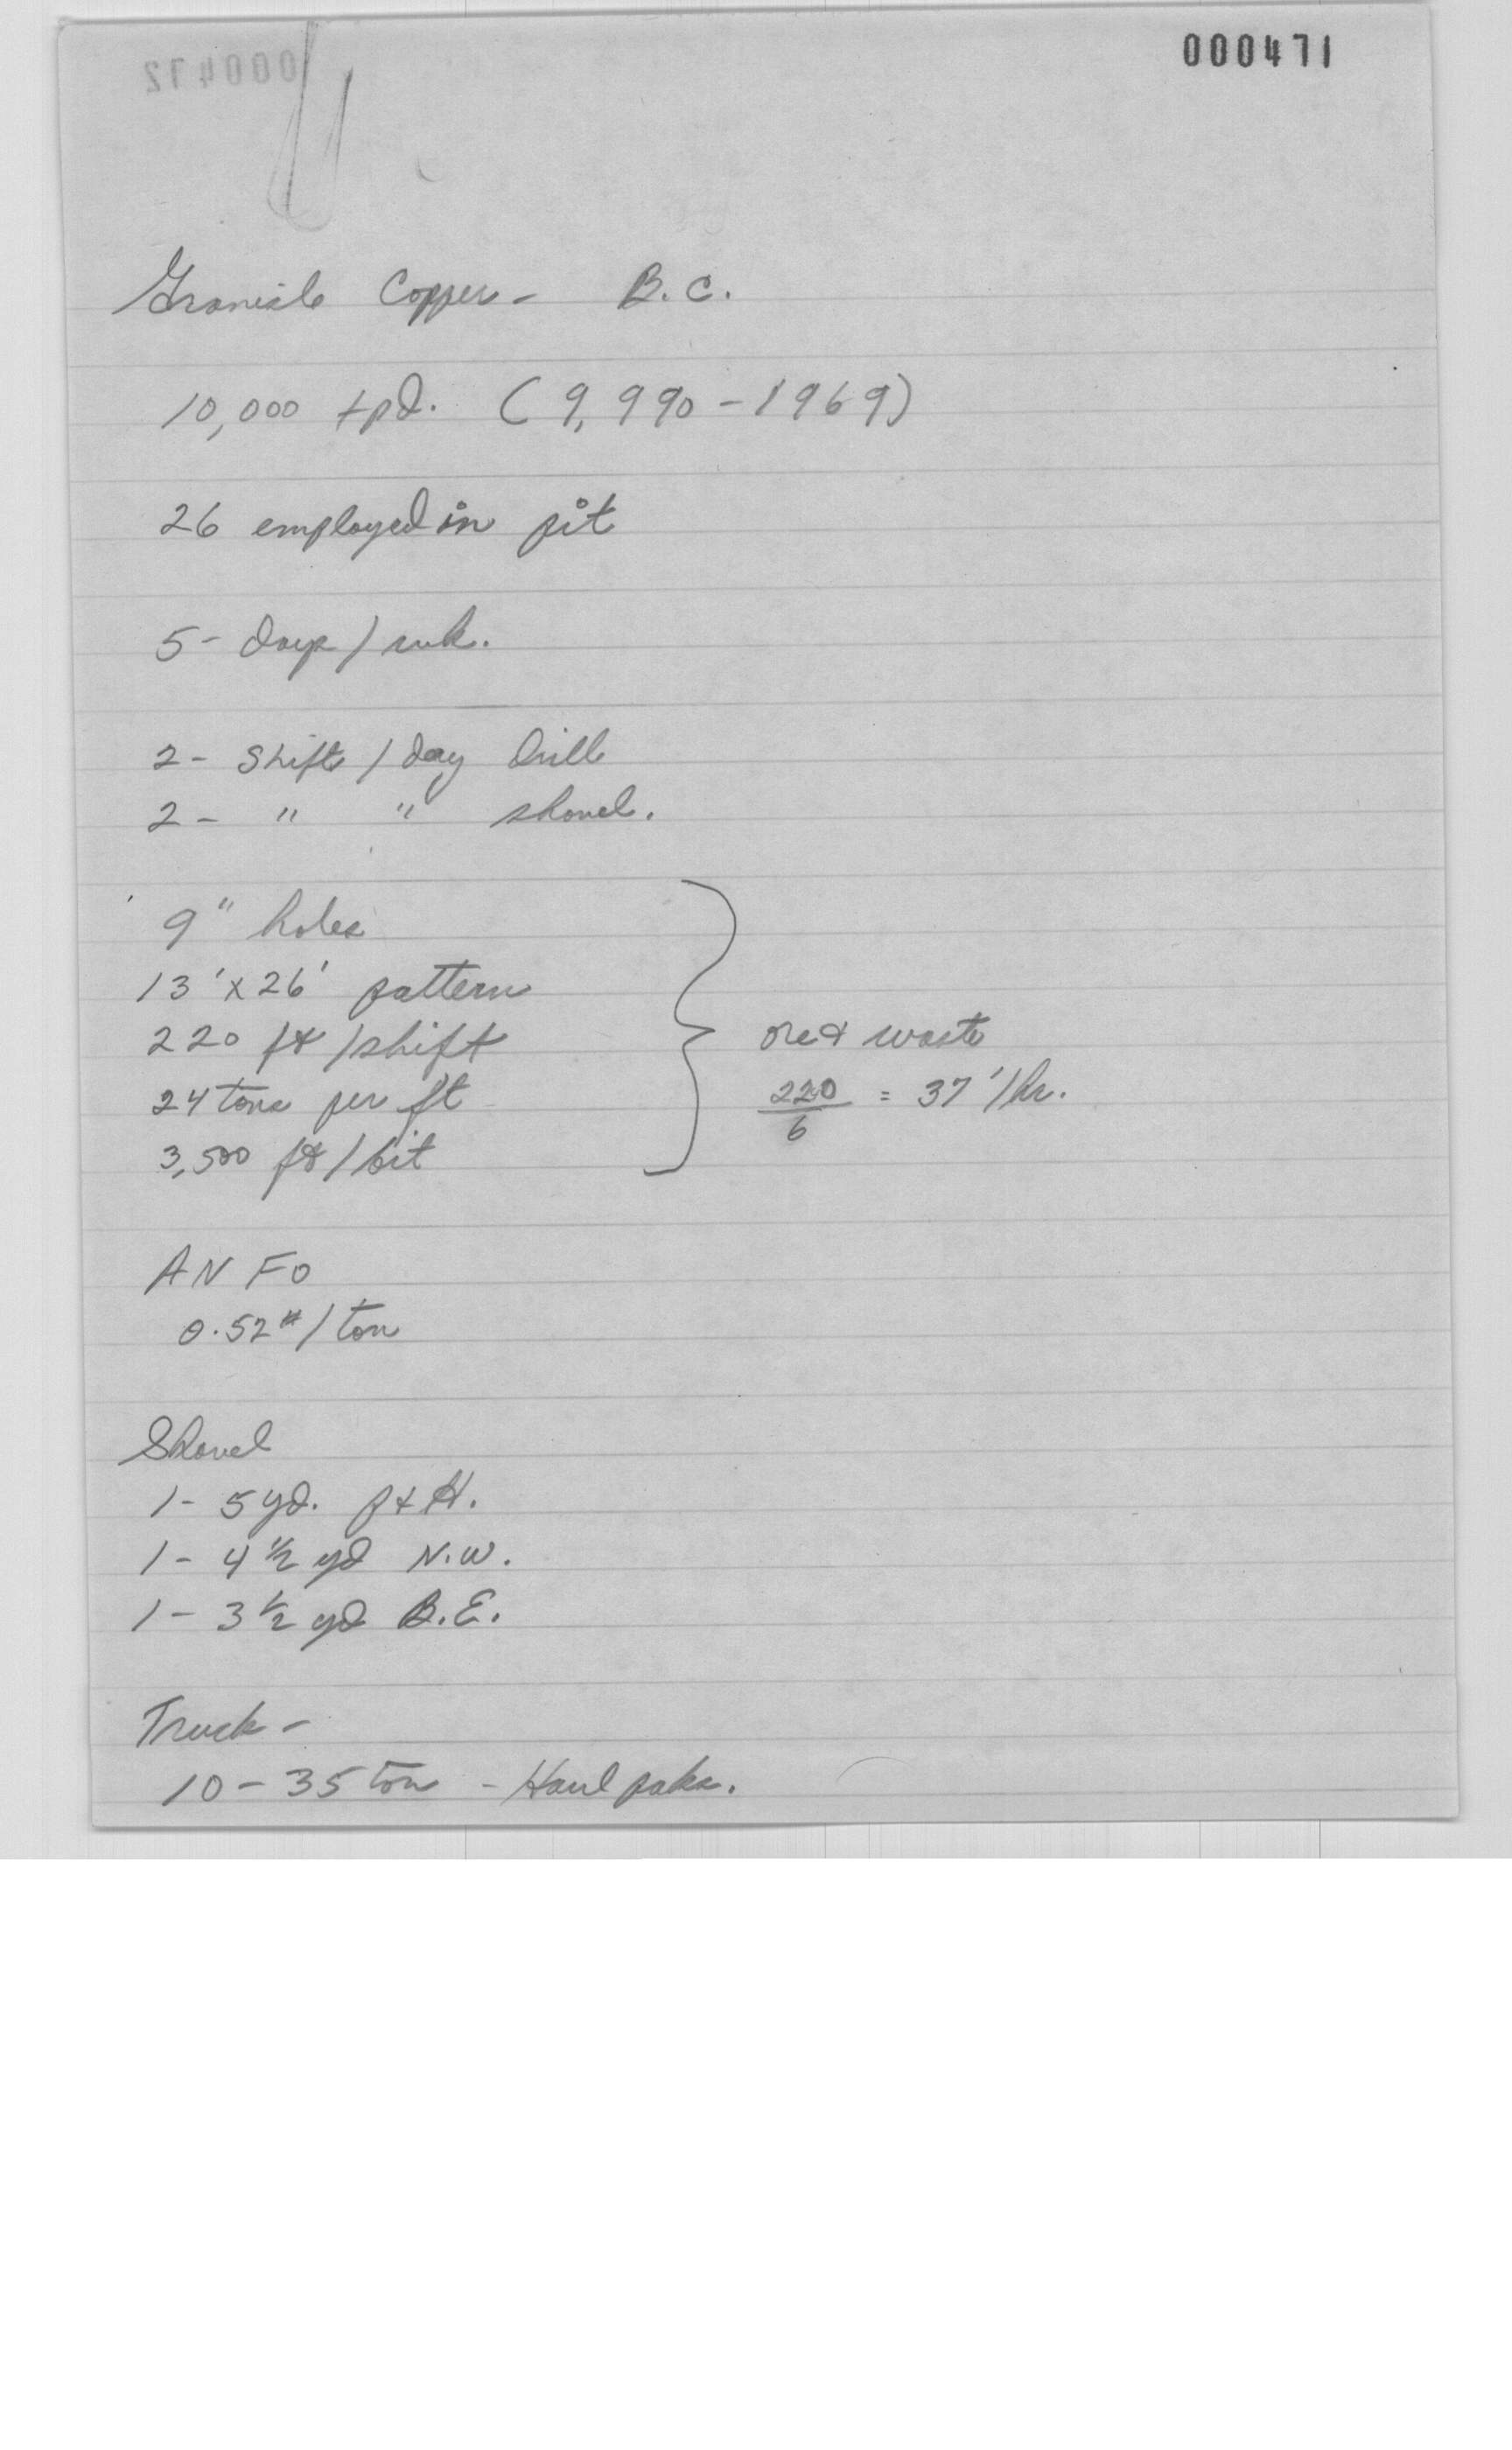 000471
000472
Granisle Copper - B.C.
10,000 tpd. (9,990 - 1969)
26 employed in pit
5 - days / wk.
2 - Shift / day Drill
2 - " " shovel.
9" holes
13' x 26' pattern
220 ft / shift
24 tons per ft
3,500 ft / bit
ore & waste
220/6 = 37'/hr.
AN FO
0.52 # / ton
Shovel
1 - 5 yd. P & H.
1 - 4 1/2 yd N.W.
1 - 3 1/2 yd B.E.
Truck -
10 - 35 ton - Haulpaks.